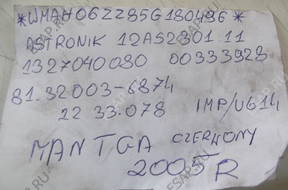 *WMAH06ZZ85G180486*
ASTRONIK 12AS2301 11
1327040080 00333928
81.32003-6874
22 33.078 IMP/UG14
MAN TGA CZERWONY
2005R